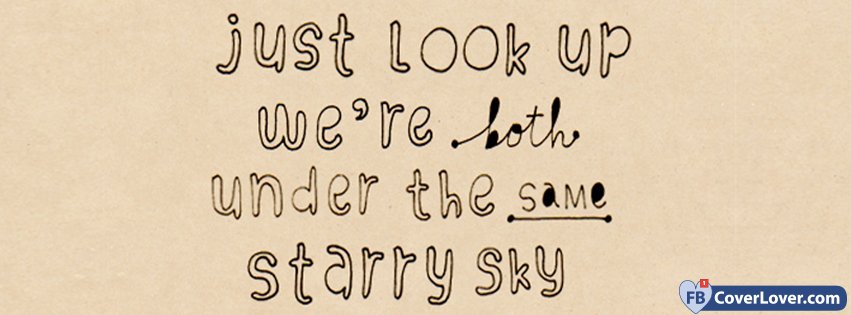 just look up
we're both
under the same
starry sky
FB 1 CoverLover.com